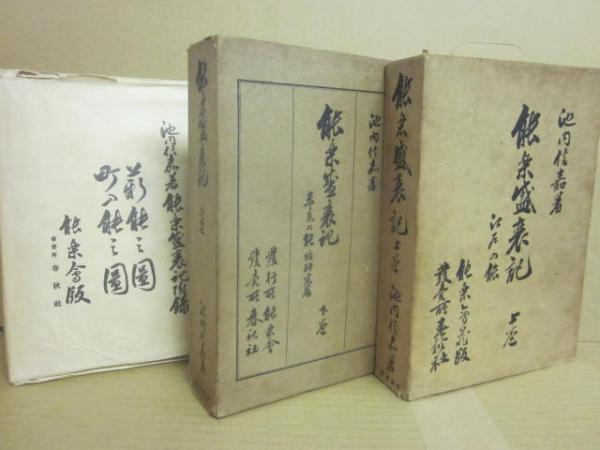 池内信嘉著 能楽盛衰記附録
薪能之圖
町入能之圖
能楽會版
發賣所 春秋社
能楽盛衰記
池内信嘉著
池内信嘉著
能楽盛衰記
東京の能
下巻
發行所 能楽會
發賣所 春秋社
能楽盛衰記 上巻 池内信嘉著
池内信嘉著
能楽盛衰記
江戸の能
上巻
能楽會蔵版
發賣所 春秋社